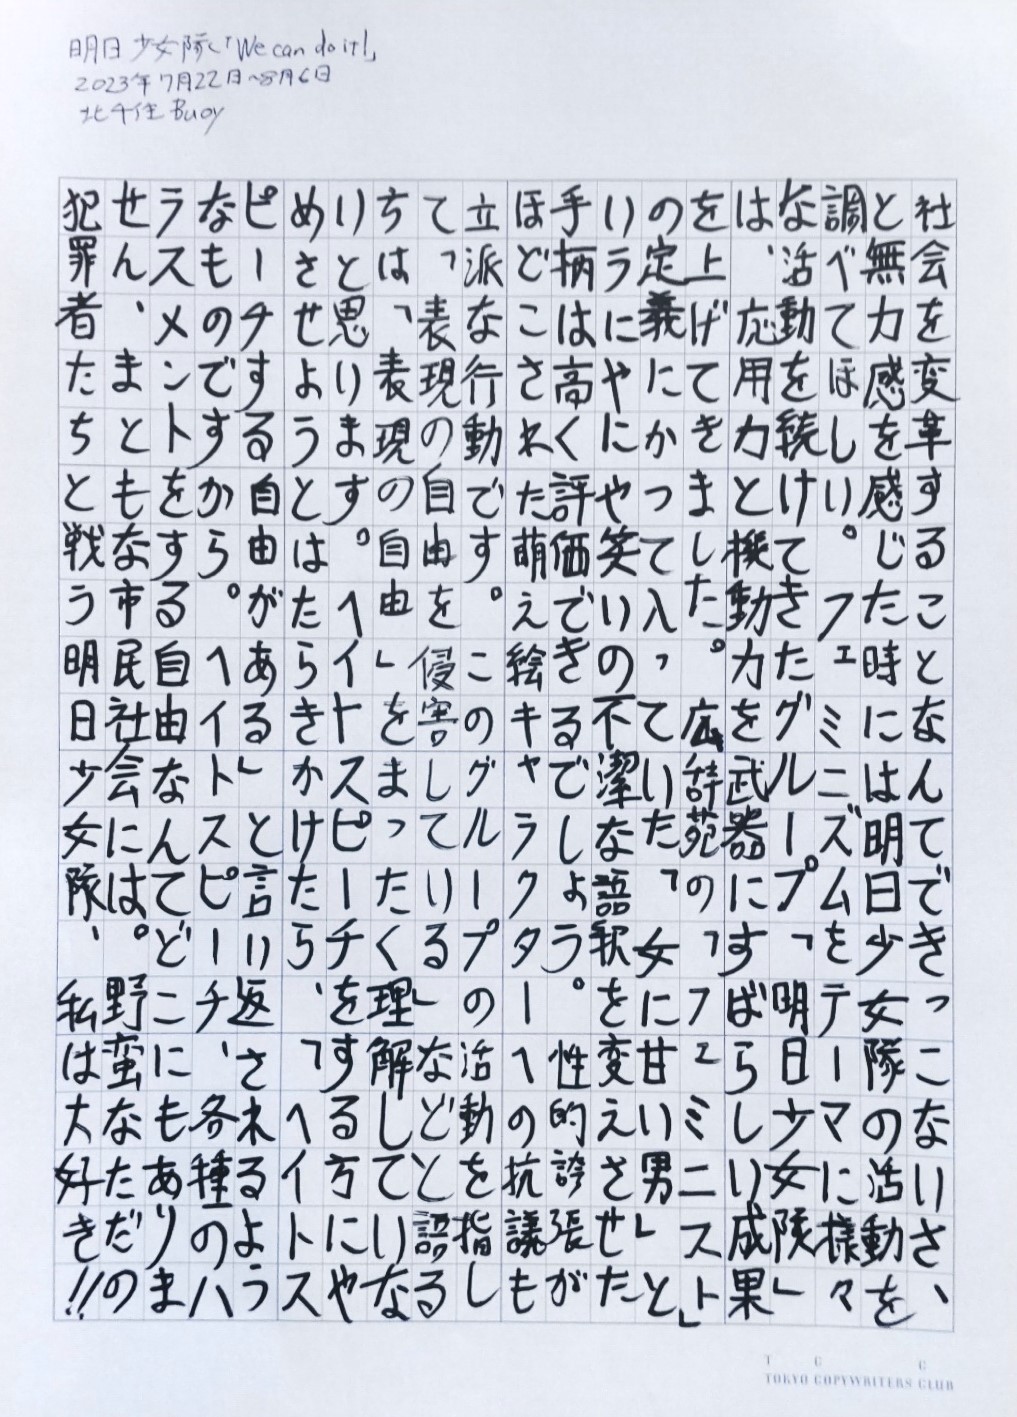 明日少女隊「We can do it!」
2023年7月22日~8月6日
北千住Buoy
社会を変革することなんてできっこないさ、
と無力感を感じた時には明日少女隊の活動を
調べてほしい。フェミニズムをテーマに様々
な活動を続けてきたグループ「明日少女隊」
は、応用力と機動力を武器にすばらしい成果
を上げてきました。広辞苑の「フェミニスト」
の定義にかかって入っていた「女に甘い男」と
いうラにやにやにや笑いの不潔な語釈を変えさせた
手柄は高く評価できるでしょう。性的誇張が
ほどこされた萌え絵キャラクターへの抗議も
立派な行動です。このグループの活動を指し
て「表現の自由を侵害している」などと語る
ちは、「表現の自由」をまったく理解していな
いと思います。ヘイトスピーチをする方にや
めさせようとはたらきかけたら、「ヘイトス
ピーチする自由がある」と言い返されるよう
なものですから。ヘイトスピーチ、各種のハ
ラスメントをする自由なんてどこにもありま
せん、まともな市民社会には。野蛮なただの
犯罪者たちと戦う明日少女隊、私は大好き!!
TCC
TOKYO COPYWRITERS CLUB